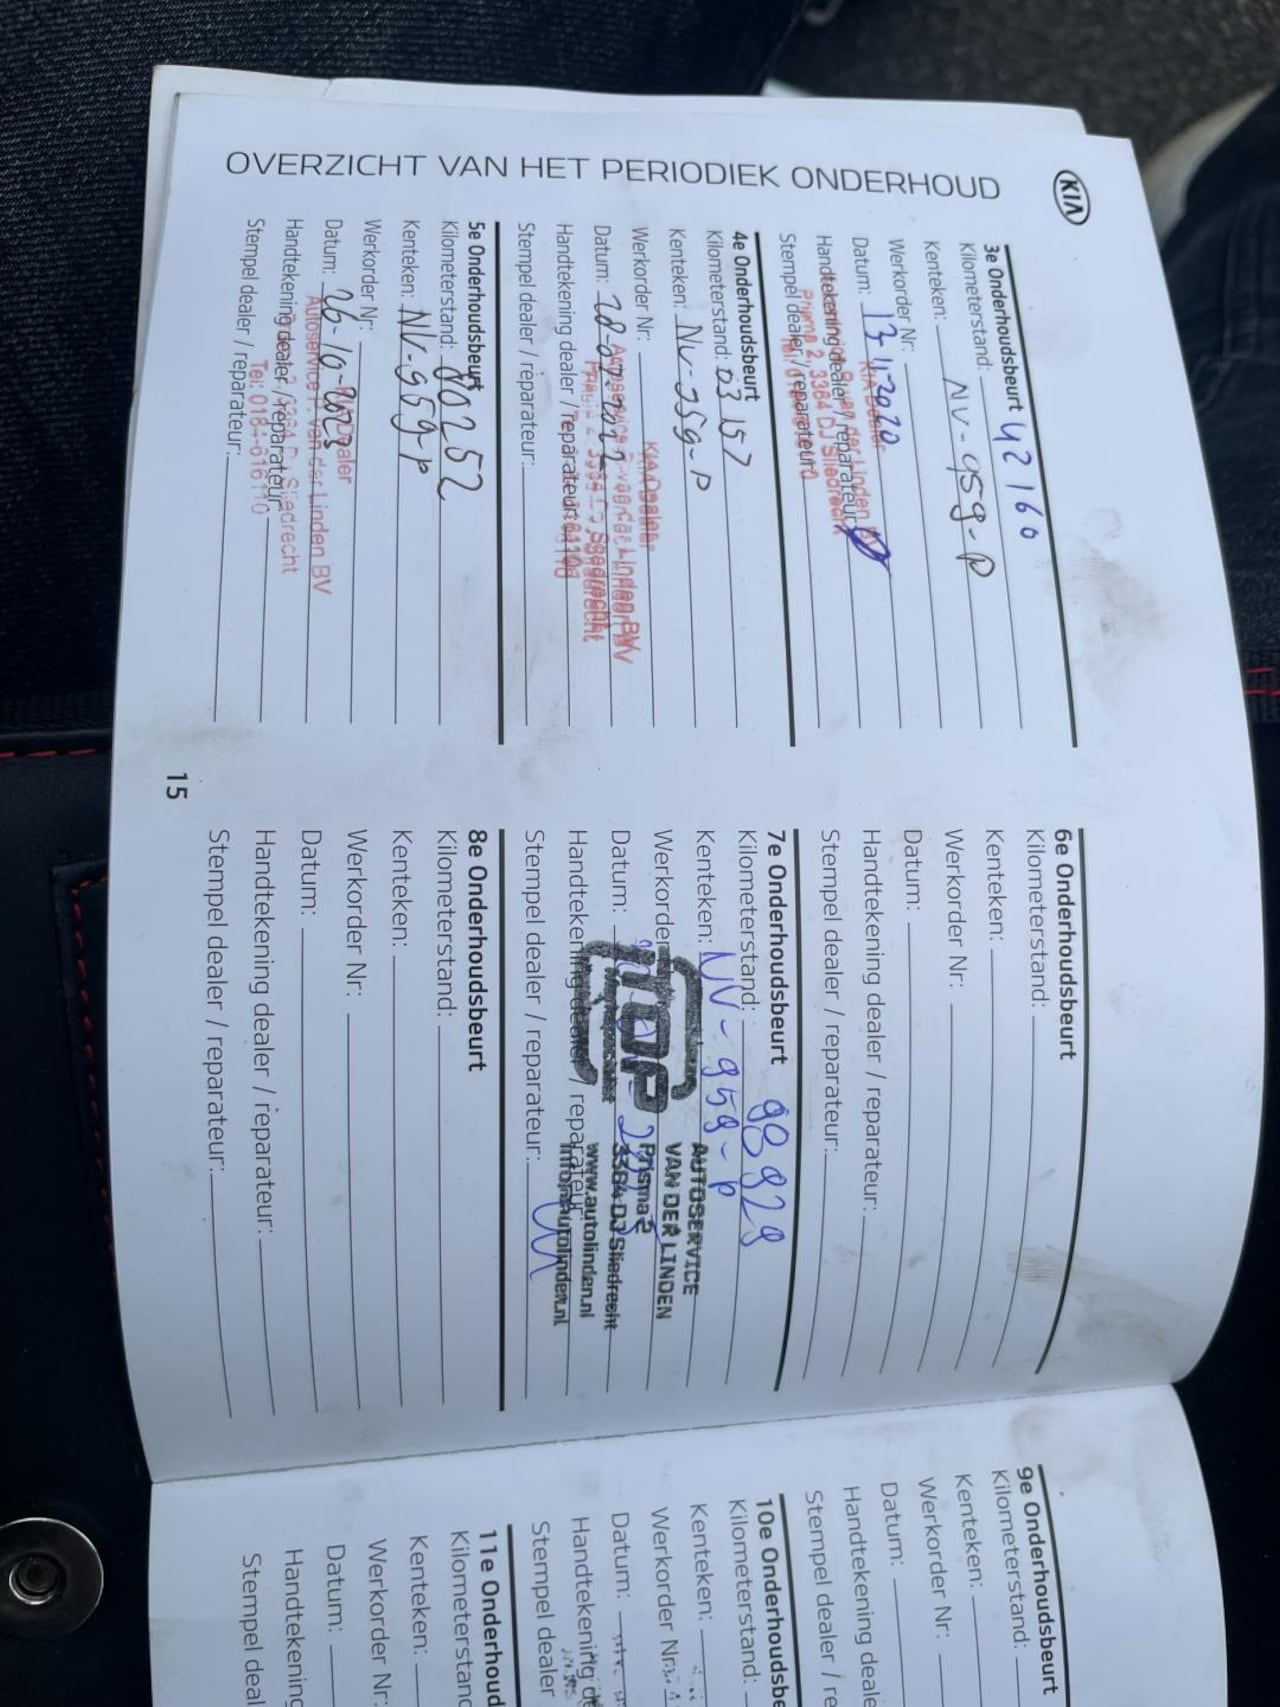 KIA
OVERZICHT VAN HET PERIODIEK ONDERHOUD
3e Onderhoudsbeurt
Kilometerstand: 42160
Kenteken: NV-959-P
Werkorder Nr:
Datum: 13-1-2020
Handtekening dealer / reparateur:
Stempel dealer / reparateur:
KIA Dealer
Prisma 2, 3364 DJ Sliedrecht
4e Onderhoudsbeurt
Kilometerstand: 63157
Kenteken: NV-959-P
Werkorder Nr:
Datum:
Handtekening dealer / reparateur:
Stempel dealer / reparateur:
KIA Dealer
5e Onderhoudsbeurt
Kilometerstand: 80252
Kenteken: NV-959-P
Werkorder Nr:
Datum: 26-10-2023
Handtekening dealer / reparateur:
Stempel dealer / reparateur:
KIA Dealer
Autoservice P. van der Linden BV
3364 DJ Sliedrecht
Tel: 0184-616110
15
6e Onderhoudsbeurt
Kilometerstand:
Kenteken:
Werkorder Nr:
Datum:
Handtekening dealer / reparateur:
Stempel dealer / reparateur:
7e Onderhoudsbeurt
Kilometerstand: 98929
Kenteken: NV-959-P
Werkorder
Datum:
Handtekening dealer / reparateur:
Stempel dealer / reparateur:
TOP
AUTOSERVICE
VAN DER LINDEN
Prisma 2
3364 DJ Sliedrecht
www.autolinden.nl
info@autolinden.nl
8e Onderhoudsbeurt
Kilometerstand:
Kenteken:
Werkorder Nr:
Datum:
Handtekening dealer / reparateur:
Stempel dealer / reparateur:
9e Onderhoudsbeurt
Kilometerstand:
Kenteken:
Werkorder Nr:
Datum:
Handtekening deale
Stempel dealer / re
10e Onderhoudsbe
Kilometerstand:
Kenteken:
Werkorder Nr:
Datum:
Handtekening de
Stempel dealer
11e Onderhoud
Kilometerstand
Kenteken:
Werkorder Nr:
Datum:
Handtekening
Stempel deal